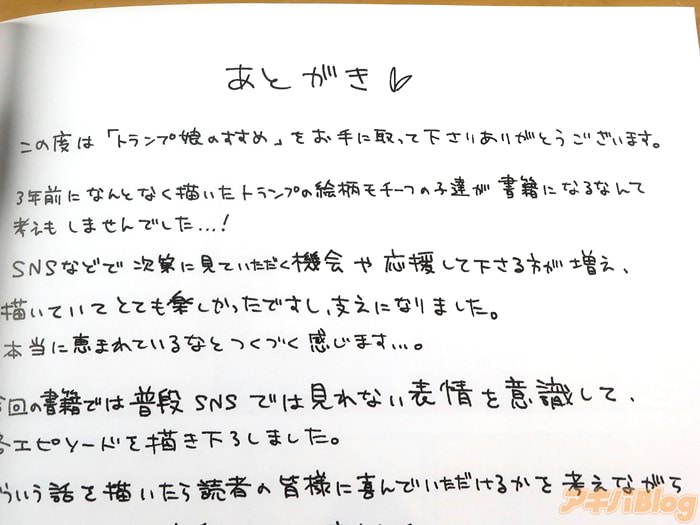 あとがき
この度は「トランプ娘のすすめ」をお手に取って下さりありがとうございます。
3年前になんとなく描いたトランプの絵柄モチーフの子達が書籍になるなんて
考えもしませんでした...!
SNSなどで次第に見ていただく機会や応援して下さる方が増え、
描いていてとても楽しかったですし、支えになりました。
本当に恵まれているなとつくづく感じます...。
今回の書籍では普段SNSでは見れない表情を意識して、
各エピソードを描き下ろしました。
ういう話を描いたら読者の皆様に喜んでいただけるかを考えながら
アキバBlog